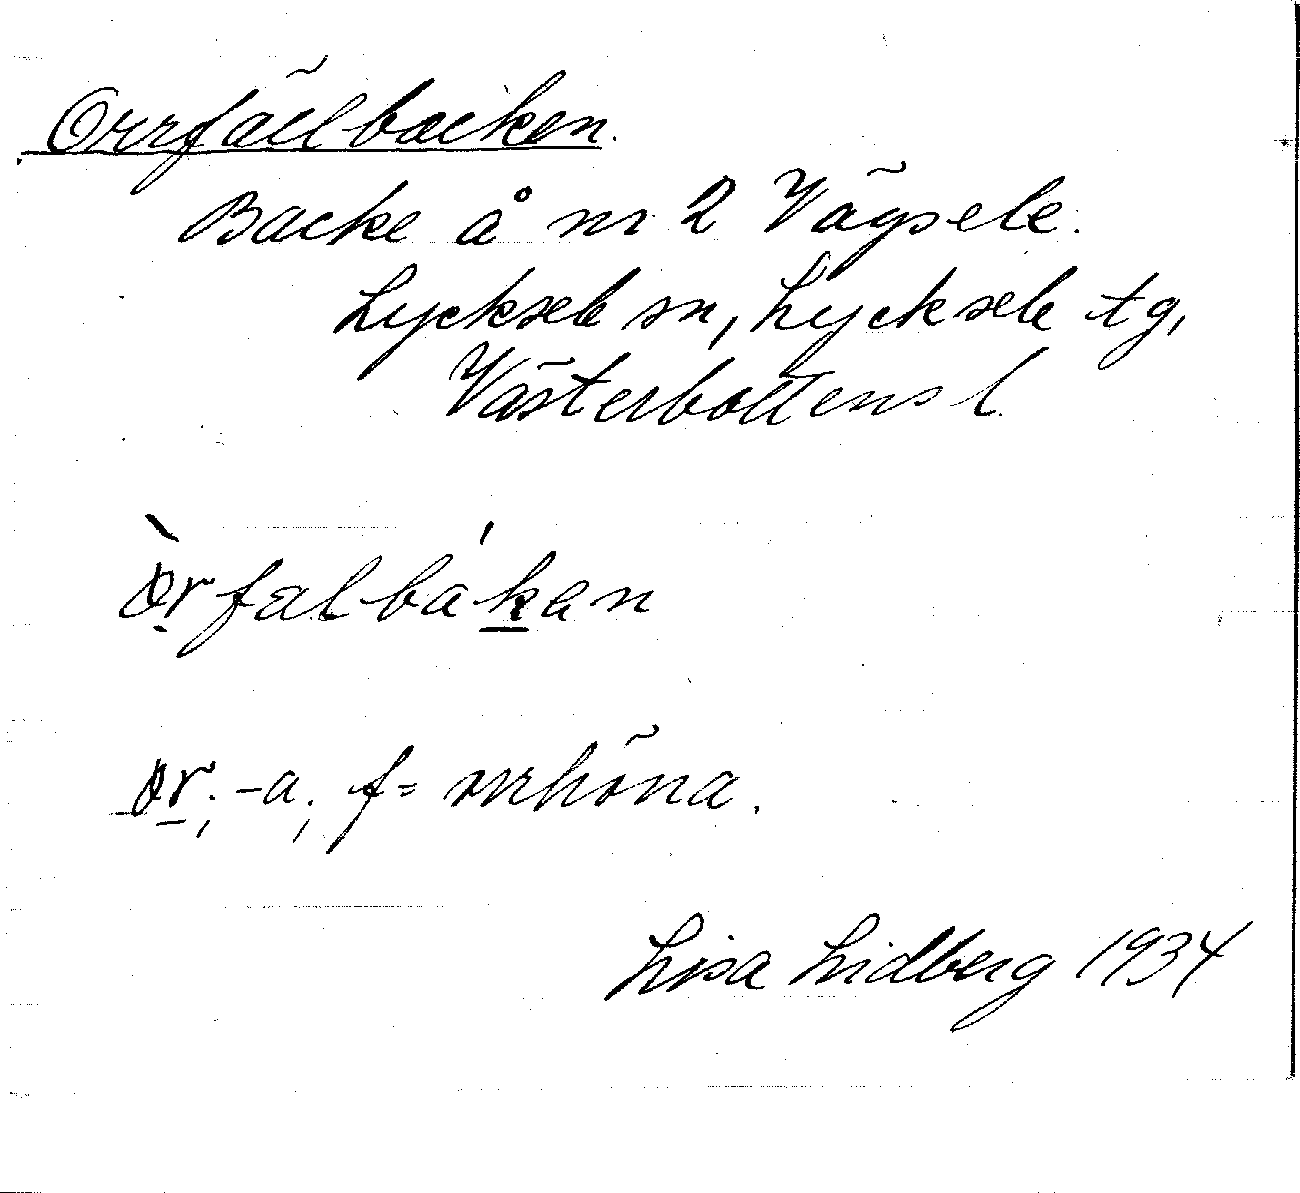 Orrfällbacken.
Backe å nr 2 Vägsele.
Lycksele sn, Lycksele tg,
Västerbottens l.
òrfælbákan
or, -a, f= orrhöna.
Lisa Lidberg 1934